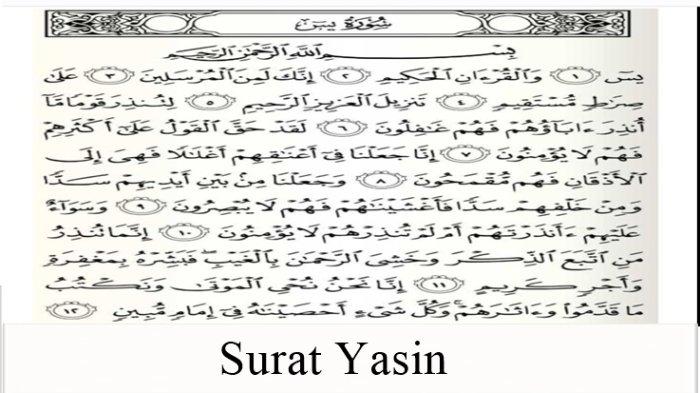 سُورَةُ يسٓ
بِسْمِ ٱللَّهِ ٱلرَّحْمَٰنِ ٱلرَّحِيمِ
يسٓ ١ وَٱلْقُرْءَانِ ٱلْحَكِيمِ ٢ إِنَّكَ لَمِنَ ٱلْمُرْسَلِينَ ٣ عَلَىٰ
صِرَٰطٍ مُّسْتَقِيمٍ ٤ تَنزِيلَ ٱلْعَزِيزِ ٱلرَّحِيمِ ٥ لِتُنذِرَ قَوْمًا مَّآ
أُنذِرَ ءَابَآؤُهُمْ فَهُمْ غَٰفِلُونَ ٦ لَقَدْ حَقَّ ٱلْقَوْلُ عَلَىٰٓ أَكْثَرِهِمْ
فَهُمْ لَا يُؤْمِنُونَ ٧ إِنَّا جَعَلْنَا فِىٓ أَعْنَٰقِهِمْ أَغْلَٰلًا فَهِىَ إِلَى
ٱلْأَذْقَانِ فَهُم مُّقْمَحُونَ ٨ وَجَعَلْنَا مِنۢ بَيْنِ أَيْدِيهِمْ سَدًّا
وَمِنْ خَلْفِهِمْ سَدًّا فَأَغْشَيْنَٰهُمْ فَهُمْ لَا يُبْصِرُونَ ٩ وَسَوَآءٌ
عَلَيْهِمْ ءَأَنذَرْتَهُمْ أَمْ لَمْ تُنذِرْهُمْ لَا يُؤْمِنُونَ ١٠ إِنَّمَا تُنذِرُ
مَنِ ٱتَّبَعَ ٱلذِّكْرَ وَخَشِىَ ٱلرَّحْمَٰنَ بِٱلْغَيْبِ ۖ فَبَشِّرْهُ بِمَغْفِرَةٍ
وَأَجْرٍ كَرِيمٍ ١١ إِنَّا نَحْنُ نُحْىِ ٱلْمَوْتَىٰ وَنَكْتُبُ
مَا قَدَّمُوا۟ وَءَاثَٰرَهُمْ ۚ وَكُلَّ شَىْءٍ أَحْصَيْنَٰهُ فِىٓ إِمَامٍ مُّبِينٍ ١٢
Surat Yasin